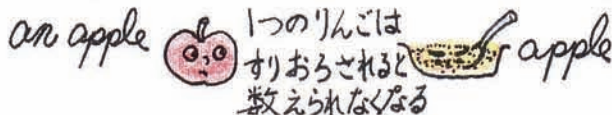 an apple
1つのりんごは
すりおろされると
数えられなくなる
apple